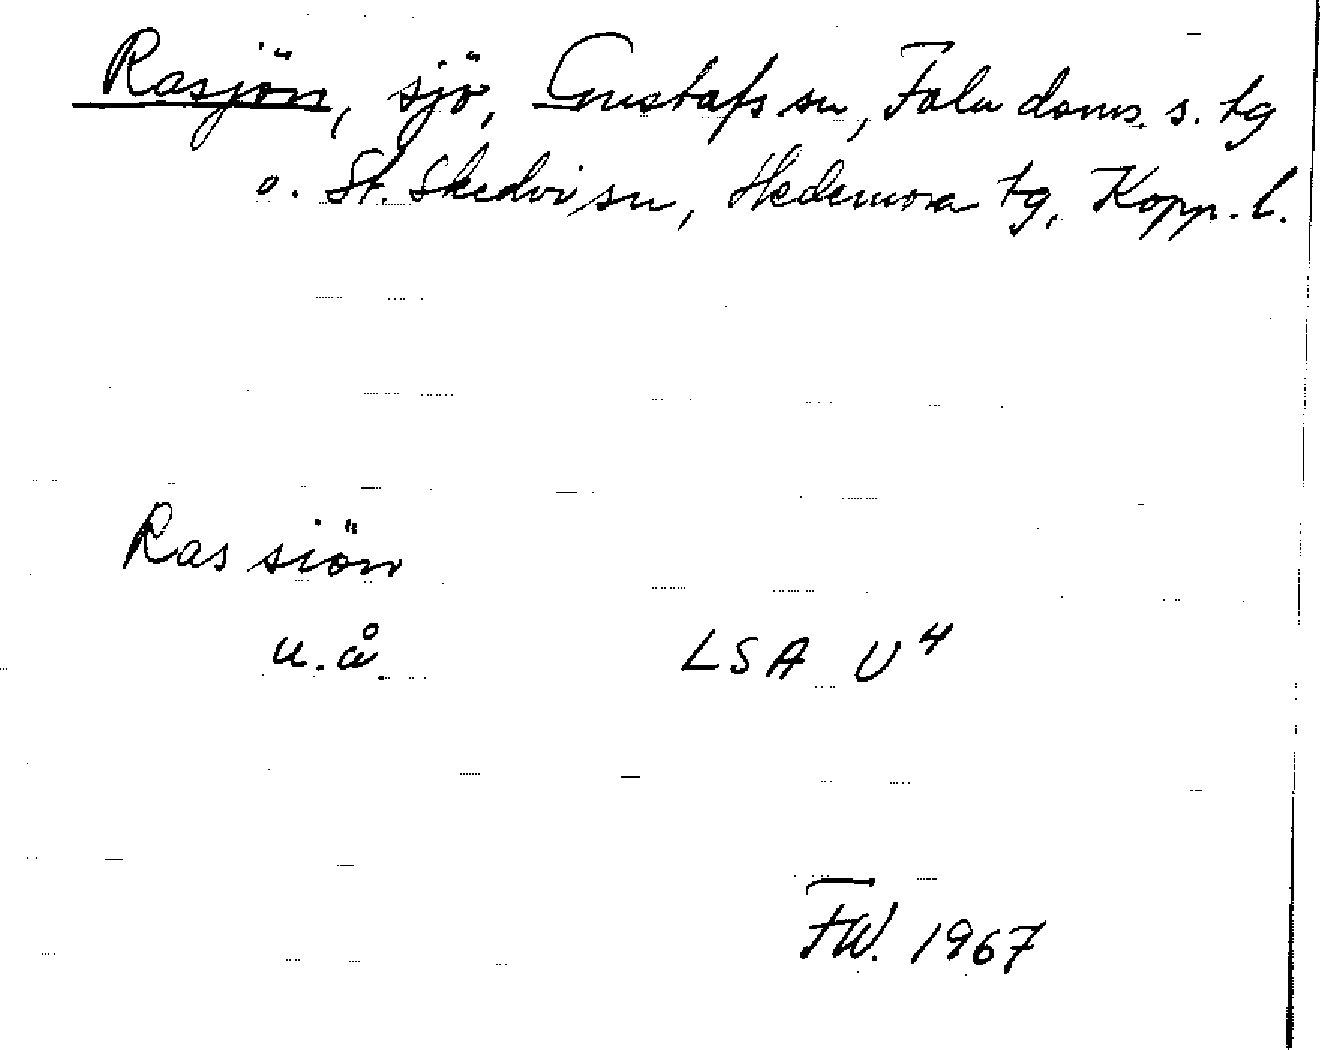 Rasjön, sjö, Gustafs sn, Falu doms. s. tg
o. St. Skedvi sn, Hedemora tg, Kopp. l.
Ras siön
u.å. LSA U4
FW. 1967